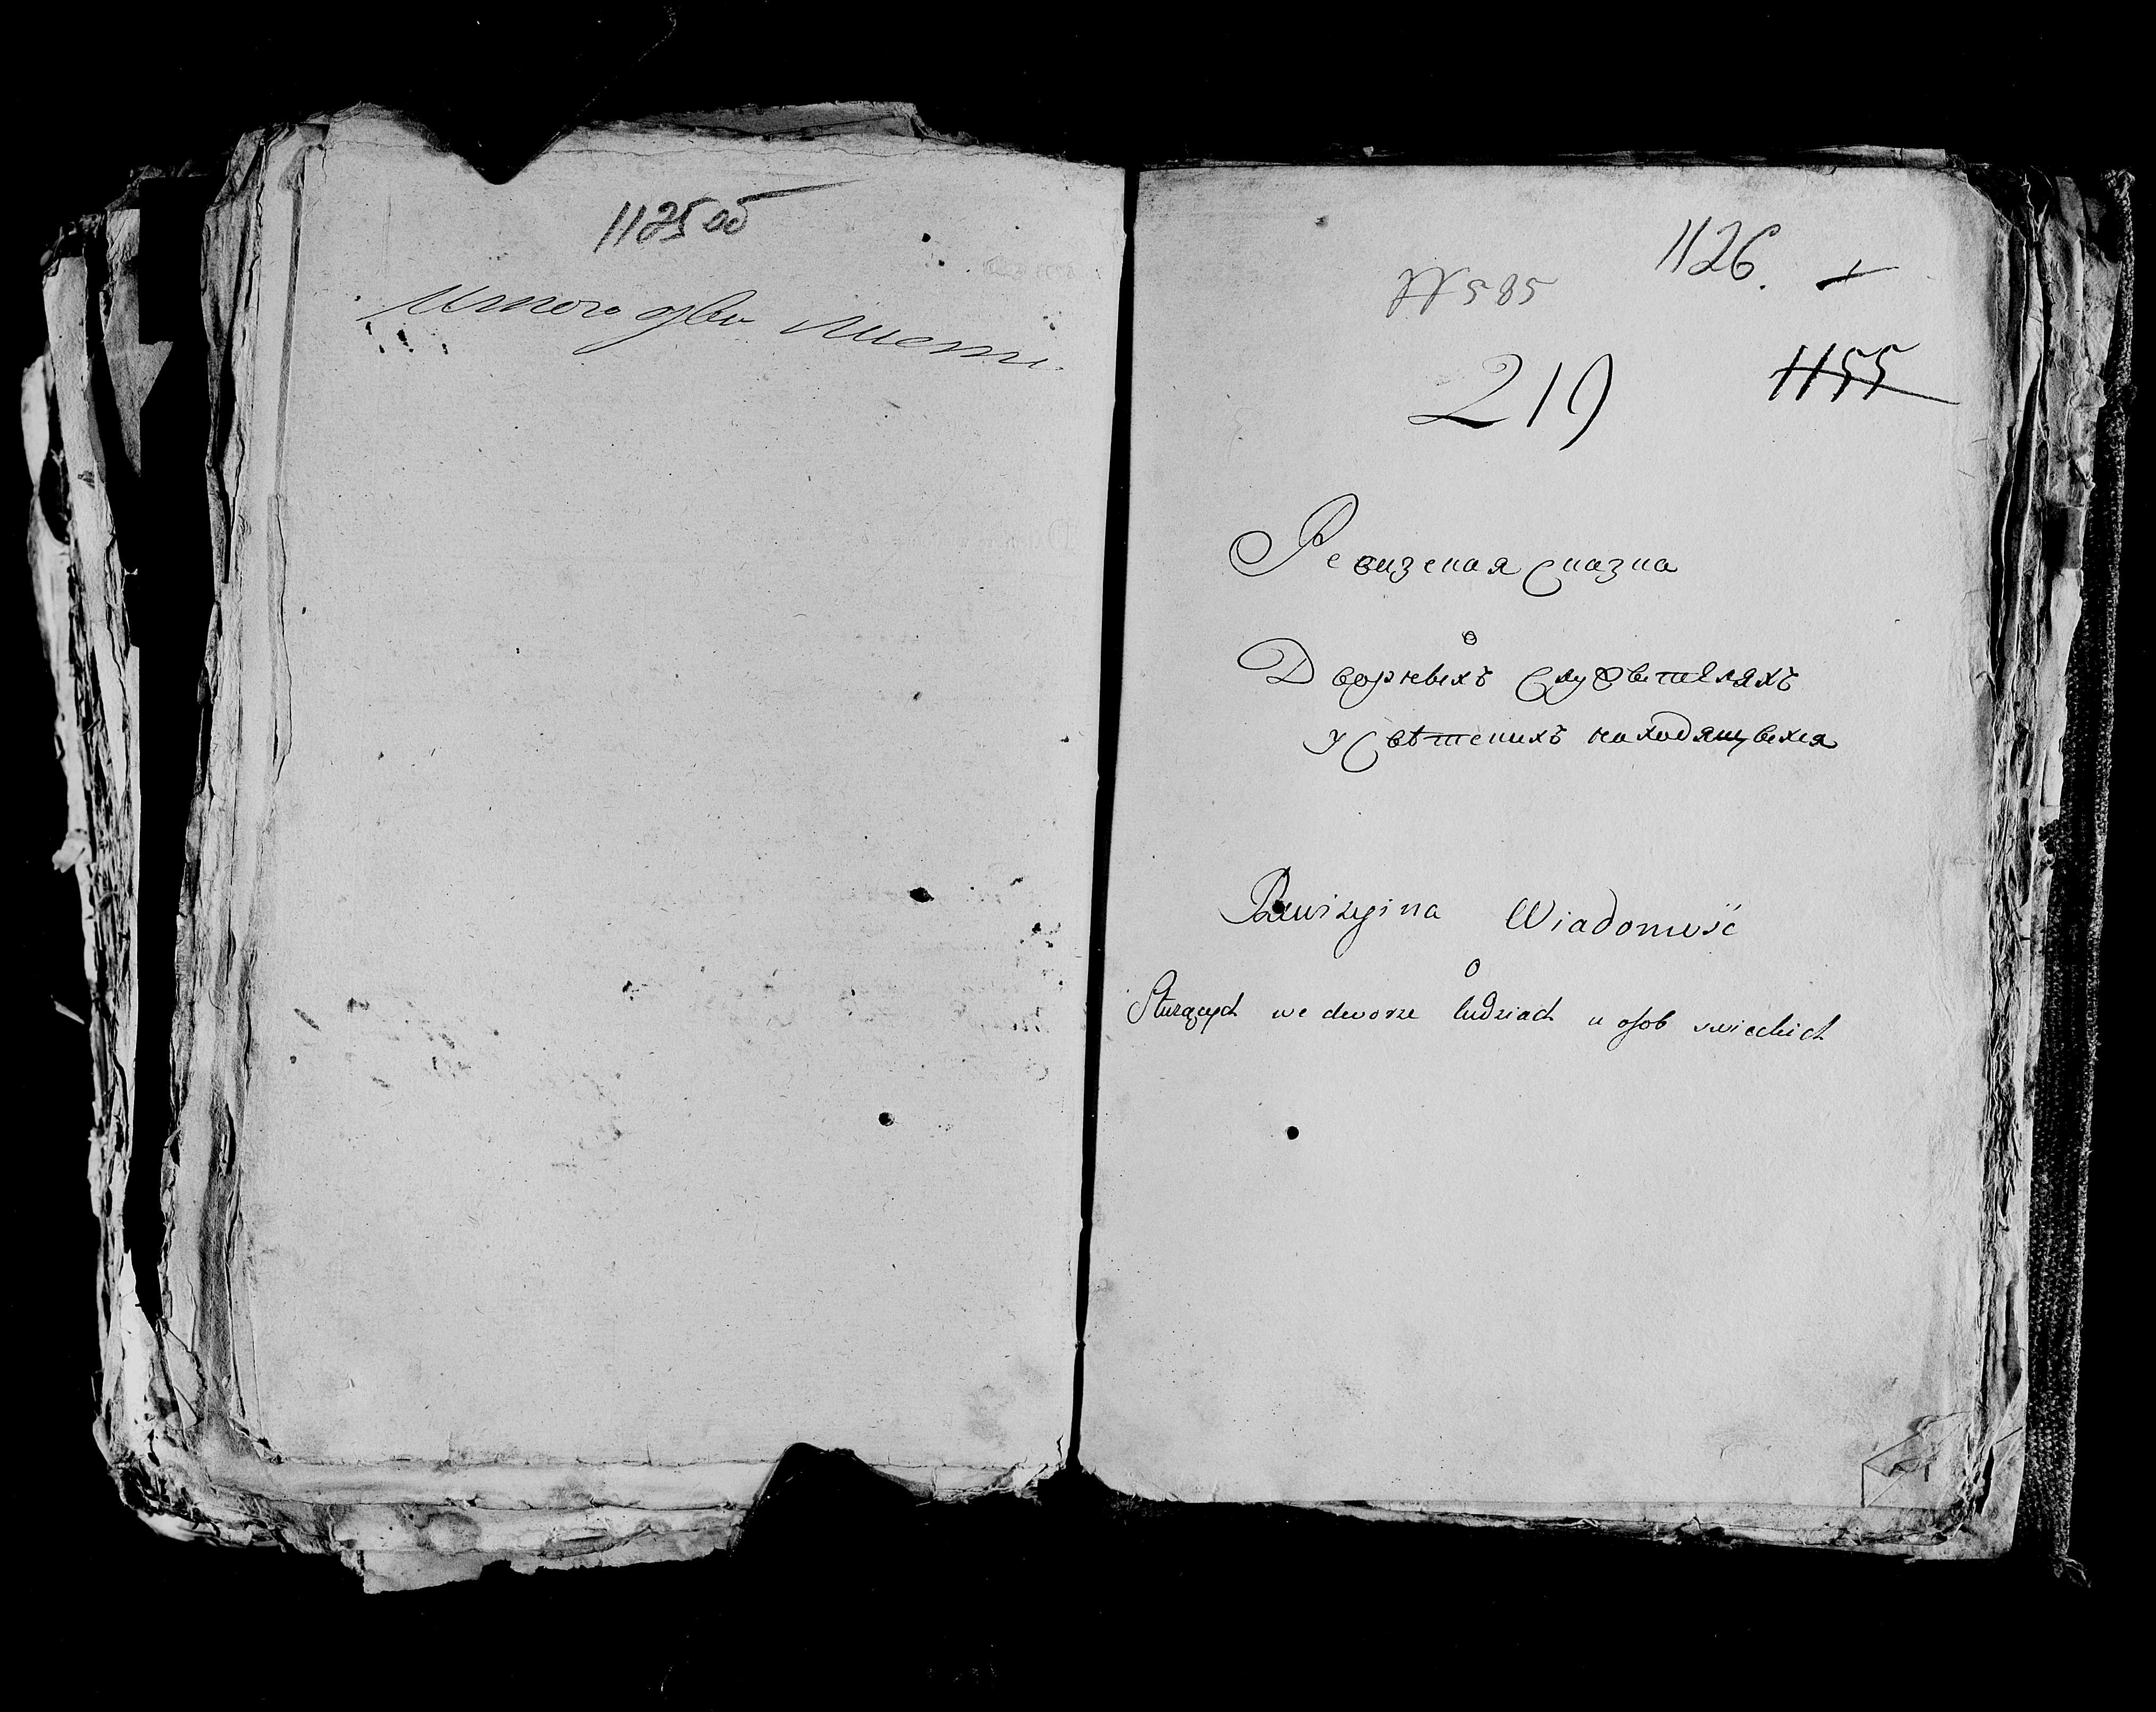 1125 об
Итого два листа
1126.
№ 585
1155
219
Ревизская Сказка
о
Дворневыхъ Служытеляхъ
у Свѣтскихъ находящыхся
Rewizyina Wiadomość
O
Służących we dworze ludziach u osob swieckich